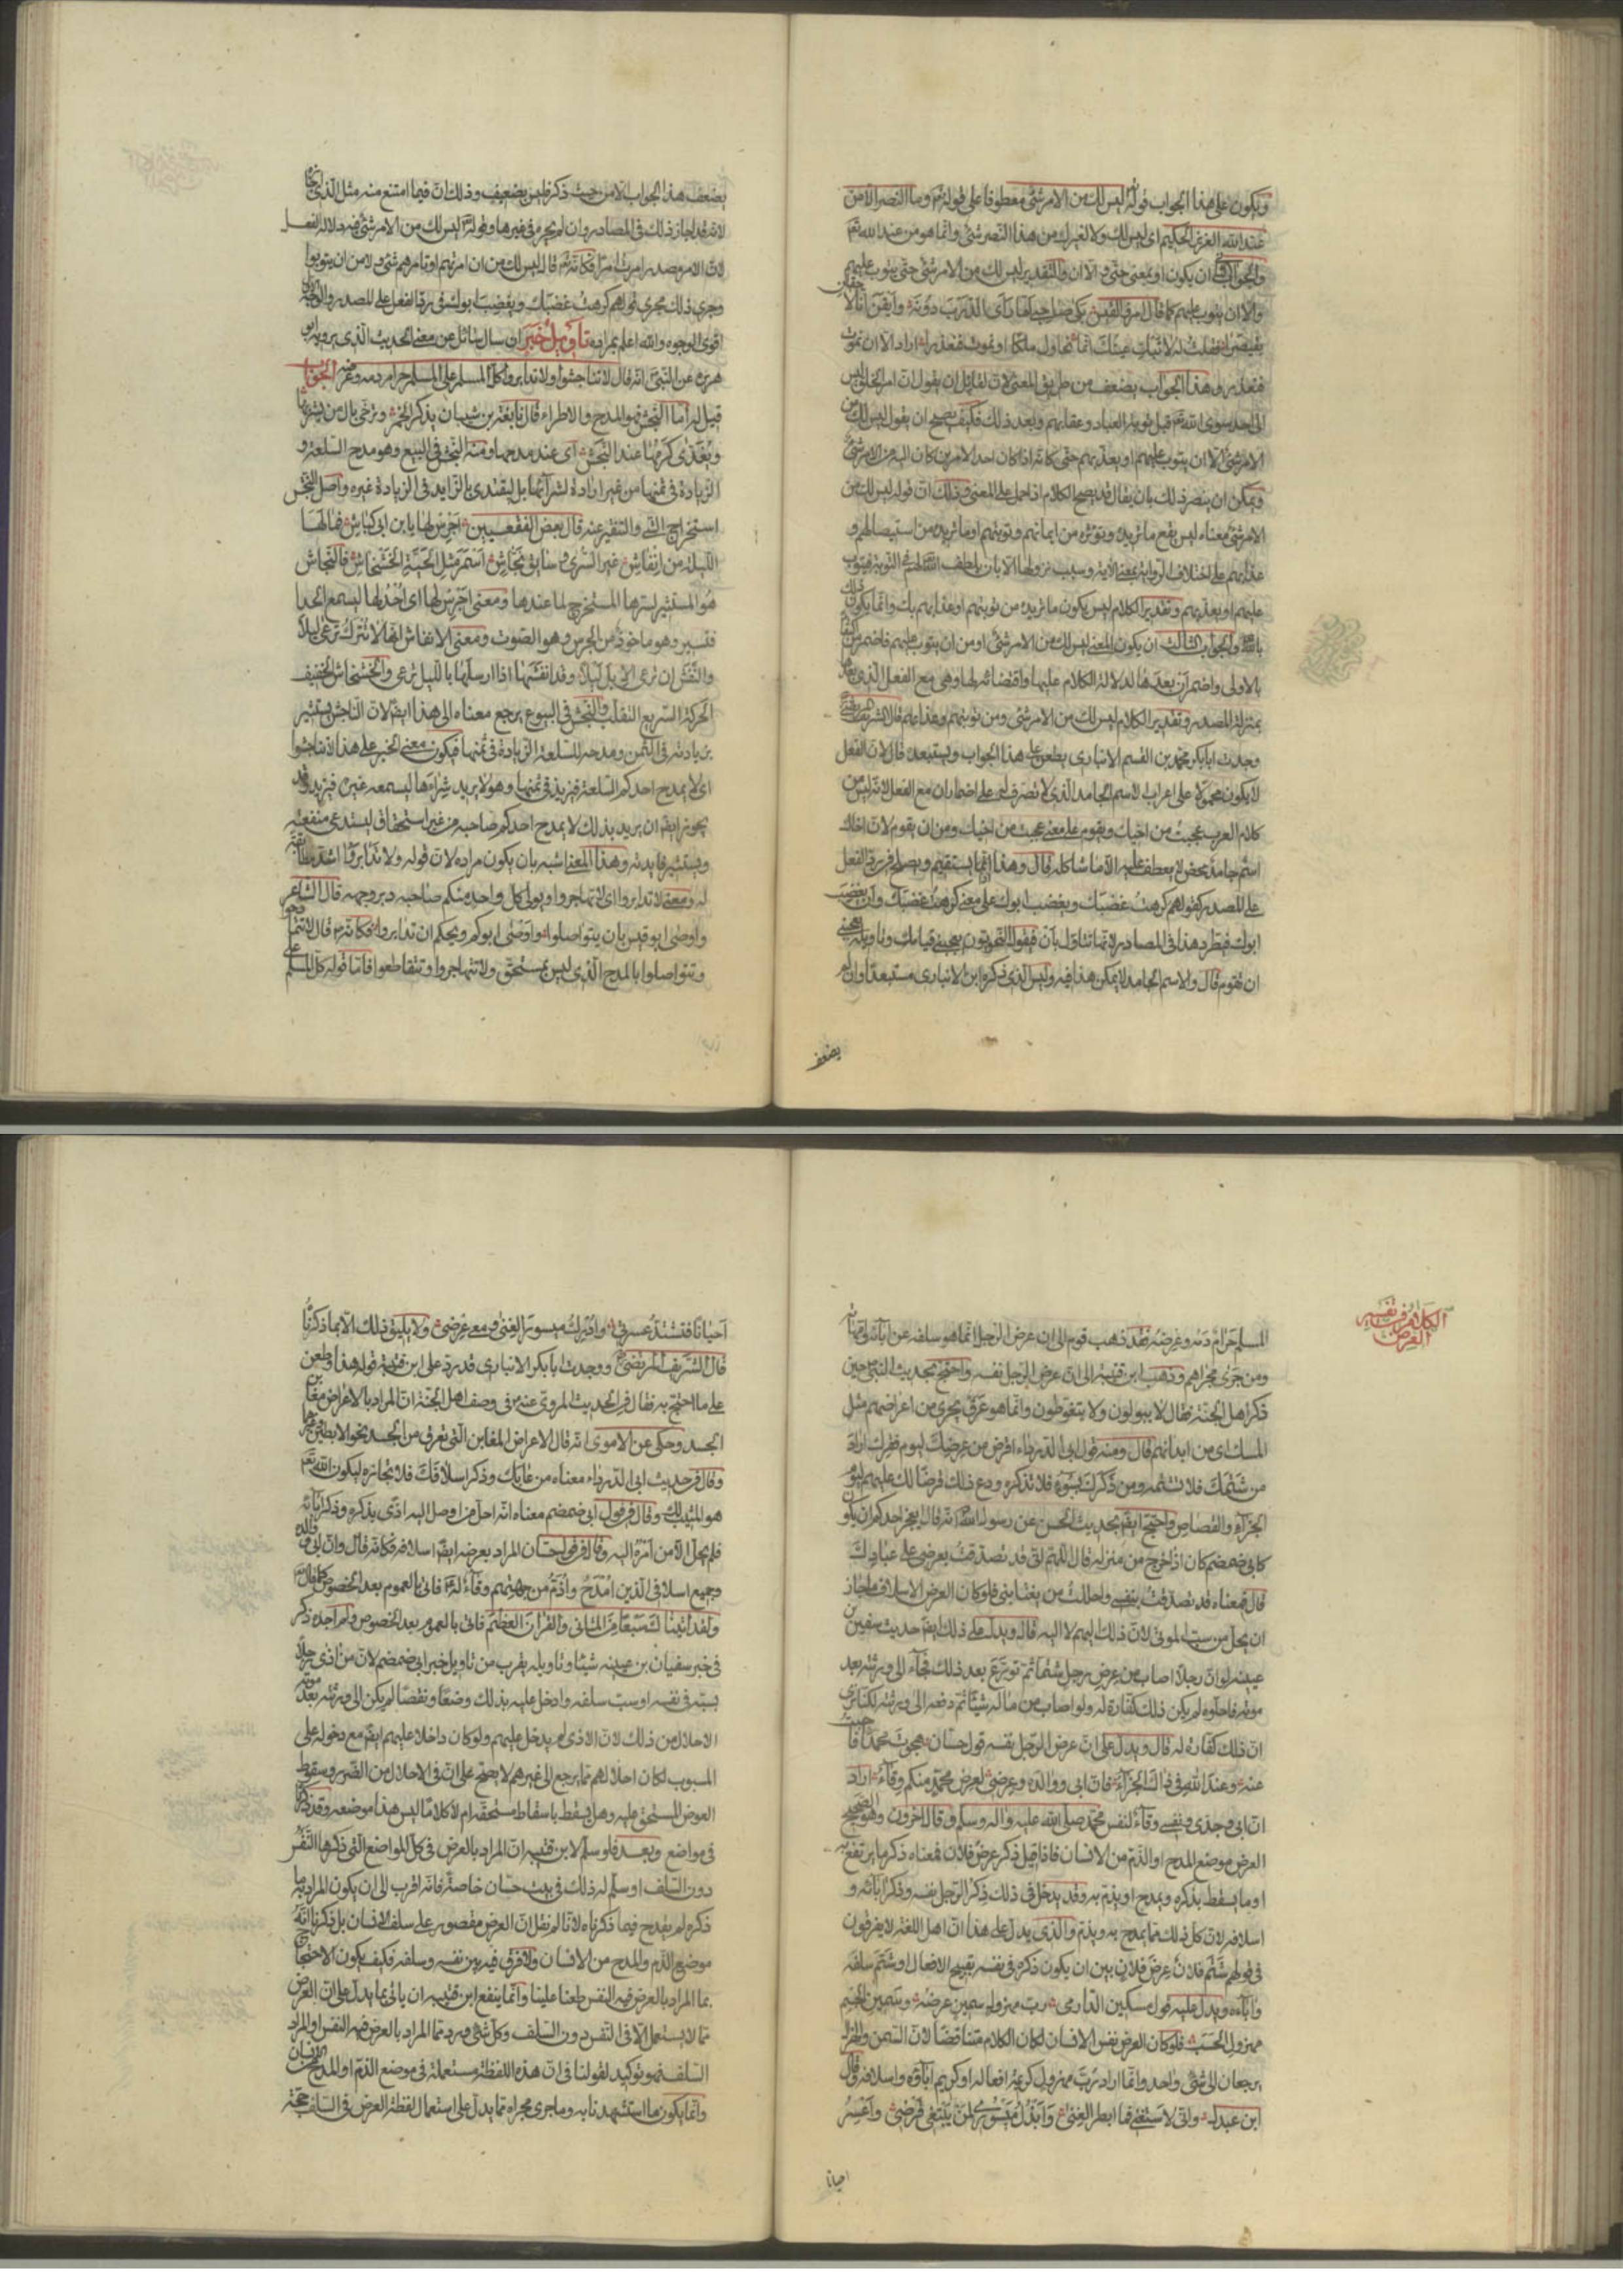 ويكون على هذا الجواب قوله ليس لك من الامر شئ معطوفا على قوله تع وما النصر الا من
عند الله العزيز الحكيم اى ليس لك ولا لغيرك من هذا النصر شئ وانما هو من عند الله تع
والجواب ان يكون او بمعنى حتى والا ان والتقدير ليس لك من الامر شئ حتى يتوب عليهم
والا ان يتوب عليهم كما قال امرؤ القيس بكى صاحبى لما راى الدرب دونه وايقن انا لاحقان
بقيصرا فقلت له لا تبك عينك انما نحاول ملكا او نموت فنعذرا اراد الا ان نموت
فنعذر وهذا الجواب يضعف من طريق المعنى لان لقائل ان يقول ان امر الخلق ليس
الى احد سوى الله تع قبل توبة العباد وعقابهم وبعد ذلك فكيف يصح ان يقول ليس لك من
الامر شئ الا ان يتوب عليهم او يعذبهم حتى كانه اذا كان احد الامرين كان اليه من الامر شئ
ويمكن ان ينصر ذلك بان يقال قد يصح الكلام اذا حمل على المعنى وذلك ان قوله ليس لك من
الامر شئ معناه ليس يقع ما تريده وتؤثره من ايمانهم وتوبتهم او ما تريده من استيصالهم و
عذابهم على اختلاف الرواية بمعنى الآية وسبب نزولها الا بان يلطف الله لهم فى التوبة فيتوب
عليهم او يعذبهم وتقدير الكلام ليس يكون ما تريده من توبتهم او عذابهم بك وانما يكون ذلك
بالله والجواب الثالث ان يكون المعنى ليس لك من الامر شئ او من ان يتوب عليهم فاضمر من اكتفاء
بالاولى واضمر ان بعدها لدلالة الكلام عليها واقتضائه لها وهى مع الفعل الذى بعدها
بمنزلة المصدر وتقدير الكلام ليس لك من الامر شئ ومن توبتهم وعذابهم قال الشريف المرتضى
وجدت ابابكر محمد بن القسم الانبارى يطعن على هذا الجواب ويستبعده قال لان الفعل
لا يكون محمولا على اعراب الاسم الجامد الذى لا تصرف له على اضمار ان مع الفعل لانه ليس من
كلام العرب عجبت من اخيك ويقوم على معنى عجبت من اخيك ومن ان يقوم لان اخاك
اسم جامد محض لا يعطف عليه الا ما شاكله قال وهذا انما يستقيم ويصلح فى رد الفعل
على المصدر كقولهم كرهت غضبك ويغضب ابوك على معنى كرهت غضبك وان يغضب
ابوك فيطرد هذا فى المصادر لانها تتاول بان فيقول النحويون يعجبنى قيامك وتاويله يعجبنى
ان تقوم قال والاسم الجامد لا يمكن هذا فيه وليس الذى ذكره ابن الانبارى مستبعدا وان لم
يضعف
يضعف هذا الجواب الا من حيث ذكر فليس بضعيف وذلك ان فيما امتنع منه مثل الذى اجازه
لانه قد اجاز ذلك فى المصادر وان لم يجزه فى غيرها وقوله تع ليس لك من الامر شئ فيه دلالة الفعل
لان الامر مصدر امرت امرا فكانه تع قال ليس لك من ان امرتهم او تامرهم شئ ولا من ان يتوبوا
وجرى ذلك مجرى قولهم كرهت غضبك ويغضب ابوك فى رد الفعل على المصدر والوجه الاول
اقوى الوجوه والله اعلم بمراده تاويل خبر ان سال سائل عن معنى الحديث الذى يرويه ابو
هريره عن النبى انه قال لا تناجشوا ولا تدابروا كل المسلم على المسلم حرام دمه وعرضه الجواب
قيل له اما النجش فهو المدح والاطراء قال نابغة بن شيبان يذكر الخمر وترخى بال من يشربها
ويفدى كرمها عند النجش اى عند مدحها ومنه النجش فى البيع وهو مدح السلعة و
الزيادة فى ثمنها من غير ارادة لشرائها بل ليقتدى بالزايد فى الزيادة غيره واصل النجش
استخراج الشئ والتنقير عنه قال بعض الفقعسيين اجرس لها يا ابن ابى كباش فما لها
الليلة من انفاش غير السرى وسايق نجاش اسمر مثل الحية الخشخاش فالنجاش
هو المستثير لسيرها المستخرج لما عندها ومعنى اجرس لها اى احد لها ليسمع الحدا
فتسير وهو ماخوذ من الجرس وهو الصوت ومعنى الانفاش انها لا تترك ترعى ليلا
والنفش ان ترعى الابل ليلا وقد انفشتها اذا ارسلتها بالليل ترعى والخشخاش الخفيف
الحركة السريع التقلب والنجش فى البيوع يرجع معناه الى هذا ايضا لان الناجش يستثير
بزيادته فى الثمن ومدحه للسلعة الزيادة فى ثمنها فيكون معنى الخبر على هذا لا تناجشوا
اى لا يمدح احدكم السلعة فيزيد فى ثمنها وهو لا يريد شراءها ليسمعه غيره فيزيد وقد
يجوز ايضا ان يريد بذلك لا يمدح احدكم صاحبه من غير استحقاق ليستدعى منفعته
ويستثير فايدته وهذا المعنى اشبه بان يكون مراده لان قوله ولا تدابروا اشد مطابقة
له ومعنى لا تدابروا اى لا تهاجروا ويولى كل واحد منكم صاحبه دبر وجهه قال الشاعر
واوصى ابو قيس بان يتواصلوا واوصى ابوكم ويحكم ان تدابروا فكانه قال لا تتمادحوا
وتتواصلوا بالمدح الذى ليس بمستحق ولا تتهاجروا وتتقاطعوا فاما قوله كل المسلم على
الكلام فى تفسير
العرض
المسلم حرام دمه وعرضه فقد ذهب قوم الى ان عرض الرجل انما هو سلفه من آبائه وامهاته
ومن جرى مجراهم وذهب ابن قتيبة الى ان عرض الرجل نفسه واحتج بحديث النبى حين
ذكر اهل الجنة فقال لا يبولون ولا يتغوطون وانما هو عرق يجرى من اعراضهم مثل
المسك اى من ابدانهم قال ومنه قول ابى الدرداء اقرض من عرضك ليوم فقرك اراد
من شتمك فلا تشتمه ومن ذكرك بسوء فلا تذكره ودع ذلك قرضا لك عليهم ليوم
الجزاء والقصاص واحتج ايضا بحديث الحسن عن رسول الله انه قال ايعجز احدكم ان يكون
كابى ضمضم كان اذا خرج من منزله قال اللهم انى قد تصدقت بعرضى على عبادك
قال فمعناه قد تصدقت بنفسى واحللت من يغتابنى فلو كان العرض الاسلاف ما جاز
ان يحل من سب الموتى لان ذلك اليهم لا اليه قال ويدل على ذلك ايضا حديث سفين بن
عيينه لو ان رجلا اصاب من عرض رجل شيئا ثم تورع بعد ذلك فجاء الى ورثته بعد
موته فاحلوه لم يكن ذلك كفارة له ولو اصاب من ماله شيئا ثم دفعه الى ورثته لكنا نرى
ان ذلك كفارة له قال ويدل على ان عرض الرجل نفسه قول حسان هجوت محمدا فاجبت
عنه وعند الله فى ذاك الجزاء فان ابى ووالده وعرضى لعرض محمد منكم وقاء اراد
ان ابى وجدى ونفسى وقاء لنفس محمد صلى الله عليه واله وسلم وقال آخرون وهو الصحيح
العرض موضع المدح او الذم من الانسان فاذا قيل ذكر عرض فلان فمعناه ذكر ما يرتفع به
او ما يسقط بذكره ويمدح او يذم به وقد يدخل فى ذلك ذكر الرجل نفسه وذكر آبائه و
اسلافه لان كل ذلك مما يمدح به ويذم والذى يدل على هذا ان اهل اللغة لا يفرقون
فى قولهم شتم فلان عرض فلان بين ان يكون ذكره فى نفسه بقبيح الافعال او شتم سلفه
وآباءه ويدل عليه قول مسكين الدارمى رب مهزول سمين عرضه وسمين الجسم
مهزول الحسب فلو كان العرض نفس الانسان لكان الكلام متناقضا لان السمن والهزال
يرجعان الى شئ واحد وانما اراد رب مهزول كريمة افعاله او كريم آباؤه واسلافه وقال
ابن عبدل وانى لاستغنى فما ابطر الغنى وابذل ميسورى لمن يبتغى قرضى واعسر
احيانا
احيانا فتشتد عسرتى وادرك ميسور الغنى ومعى عرضى ولا يليق ذلك الا بما ذكرناه
قال الشريف المرتضى ووجدت ابابكر الانبارى قد رد على ابن قتيبة قوله هذا وطعن
على ما احتج به فقال فى الحديث المروى عنه فى وصف اهل الجنة ان المراد بالاعراض مغابن
الجسد وحكى عن الاموى انه قال الاعراض المغابن التى تعرق من الجسد نحو الابطين وغيرهما
وقال فى حديث ابى الدرداء معناه من عابك وذكر اسلافك فلا تجازه ليكون الله تع
هو المثيب لك وقال فى قول ابى ضمضم معناه انه احل من اوصل اليه اذى بذكره وذكر آبائه
فلم يحل الا من امره اليه وقال فى قول حسان المراد بعرضه ايضا اسلافه فكانه قال وان ابى ووالده
وجميع اسلافى الذين امدح واذم من جهتهم وقاء له فاتى بالعموم بعد الخصوص كما قال تع
ولقد اتيناك سبعا من المثانى والقرآن العظيم فاتى بالعموم بعد الخصوص ولم اجده ذكر
فى خبر سفيان بن عيينه شيئا وتاويله يقرب من تاويل خبر ابى ضمضم لان من اذى رجلا
بسبه فى نفسه او سب سلفه وادخل عليه بذلك وضعا ونقصا لم يكن الى ورثته بعد موته
الاحلال من ذلك لان الاذى لم يدخل عليهم ولو كان داخلا عليهم ايضا مع دخوله على
المسبوب لكان احلالهم مما يرجع الى غيرهم لا يصح على ان فى الاحلال من الضرر وسقوط
العوض المستحق عليه وهل يسقط باسقاط مستحقه ام لا كلاما ليس هذا موضعه وقد ذكرناه
فى مواضع وبعد فلو سلم لابن قتيبه ان المراد بالعرض فى كل المواضع التى ذكرها النفس
دون السلف او سلم له ذلك فى بيت حسان خاصة فانه اقرب الى ان يكون المراد به ما
ذكره لم يقدح فيما ذكرناه لانا لم نقل ان العرض مقصور على سلف الانسان بل ذكرنا انه
موضع الذم والمدح من الانسان ولا فرق فيه بين نفسه وسلفه فكيف يكون الاحتجاج
بما المراد بالعرض فيه النفس طعنا علينا وانما ينفع ابن قتيبه ان ياتى بما يدل على ان العرض
مما لا يستعمل الا فى النفس دون السلف وكل شئ ورد مما المراد بالعرض فيه النفس او المراد
السلف فهو توكيد لقولنا فى ان هذه اللفظة مستعملة فى موضع الذم او المدح من الانسان
وانما يكون ما استشهدنا به وما جرى مجراه مما يدل على استعمال لفظة العرض فى السلف حجة